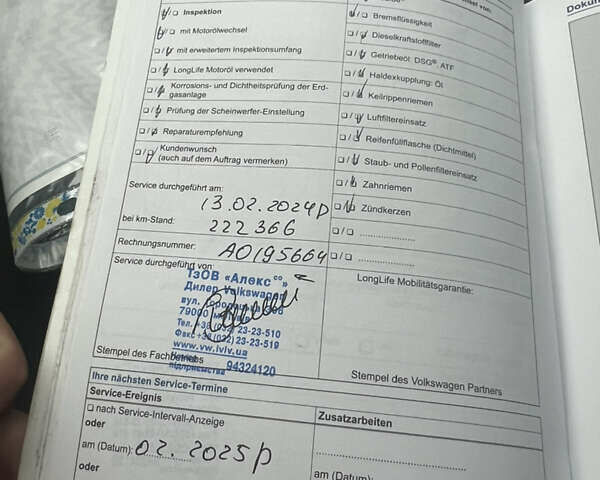 Inspektion
mit Motorölwechsel
mit erweitertem Inspektionsumfang
LongLife Motoröl verwendet
Korrosions- und Dichtheitsprüfung der Erd-
gasanlage
Prüfung der Scheinwerfer-Einstellung
Reparaturempfehlung
Kundenwunsch
(auch auf dem Auftrag vermerken)
Bremsflüssigkeit
Dieselkraftstofffilter
Getriebeöl: DSG®, ATF
Haldexkupplung: Öl
Keilrippenriemen
Luftfiltereinsatz
Reifenfüllflasche (Dichtmittel)
Staub- und Pollenfiltereinsatz
Zahnriemen
Zündkerzen
Service durchgeführt am:
13.02.2024р
bei km-Stand:
222366
Rechnungsnummer:
AO195664
Service durchgeführt von
ТзОВ «Алекс °°»
Дилер Volkswagen
вул.
79000
Тел. +38 (032) 23-23-510
Факс +38 (032) 23-23-519
www.vw.lviv.ua
94324120
підприємства
Stempel des Fachbetriebs
LongLife Mobilitätsgarantie:
Stempel des Volkswagen Partners
Ihre nächsten Service-Termine
Service-Ereignis
Zusatzarbeiten
nach Service-Intervall-Anzeige
oder
am (Datum): 02. 2025р
oder
am (Datum):